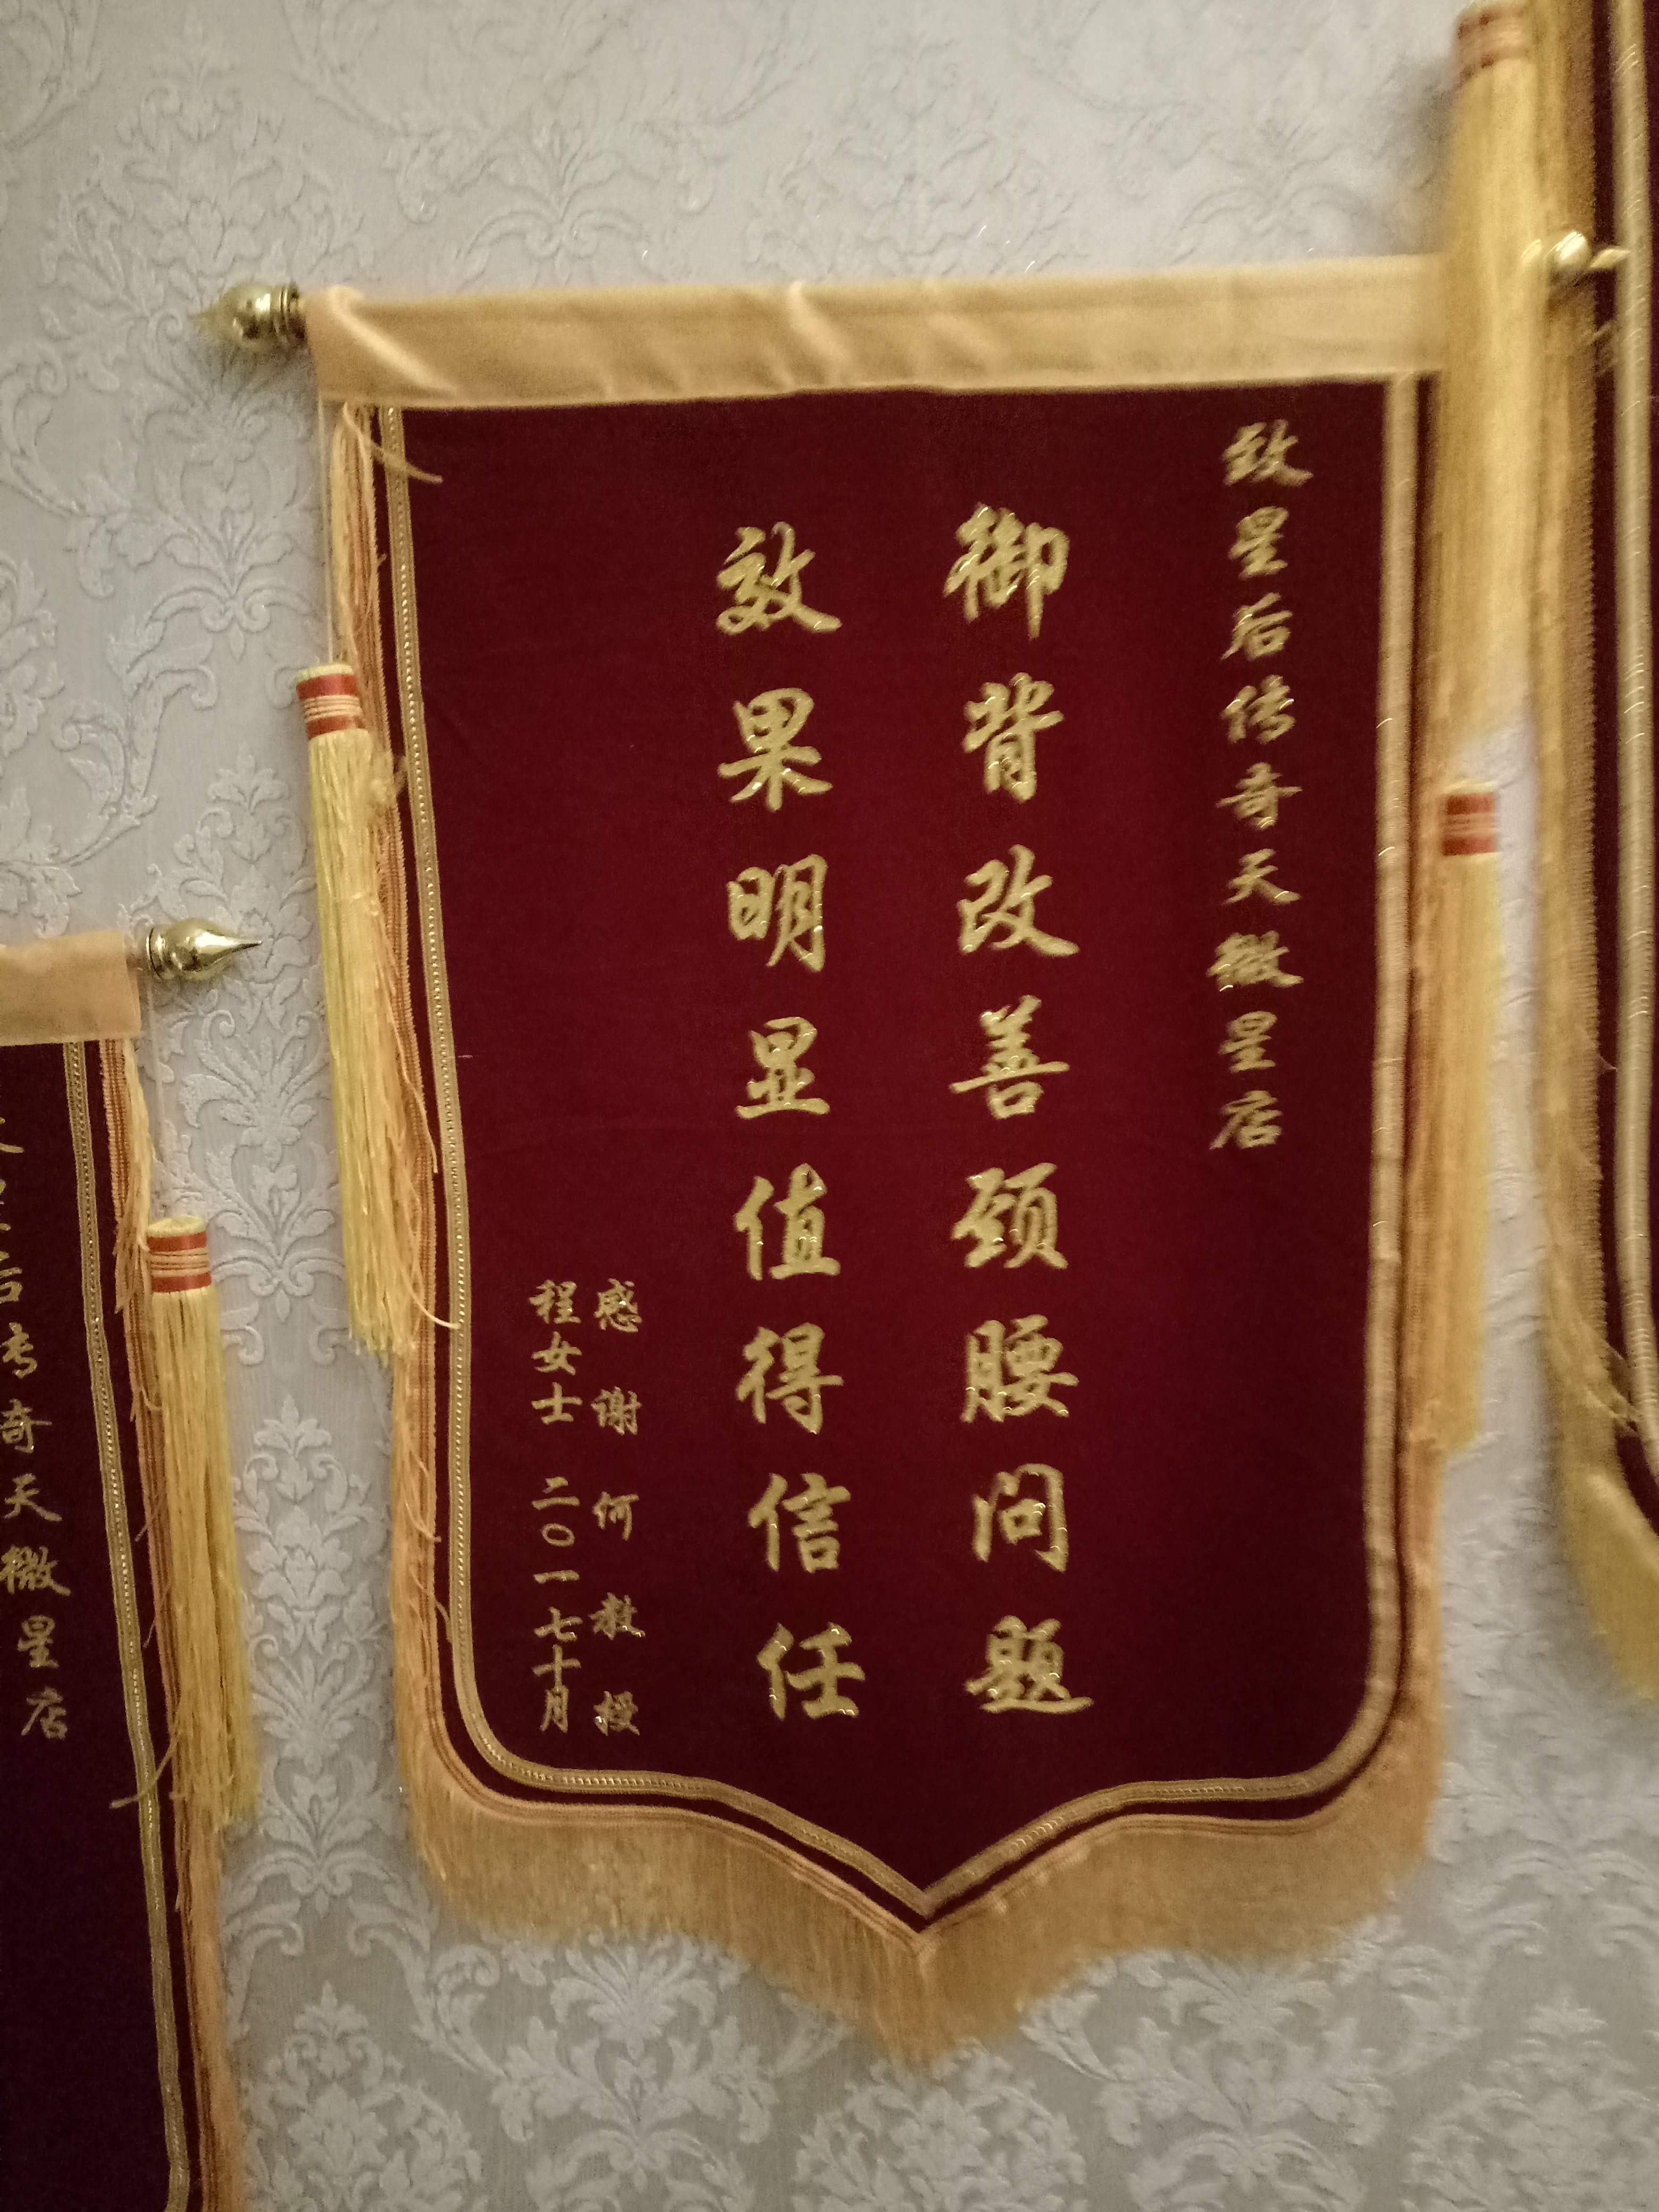 致星后传奇天微星店
御背改善颈腰问题
效果明显值得信任
感谢何教授
程女士 二〇一七十月
后传奇天微星店